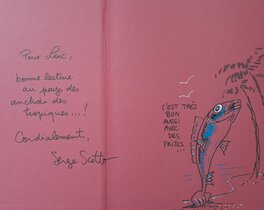 Pour Loïc,
bonne lecture
au pays des
anchois des
tropiques...!
Cordialement,
Serge Scotto
C'EST TRÈS
BON
AUSSI
AVEC
DES
FRITES...